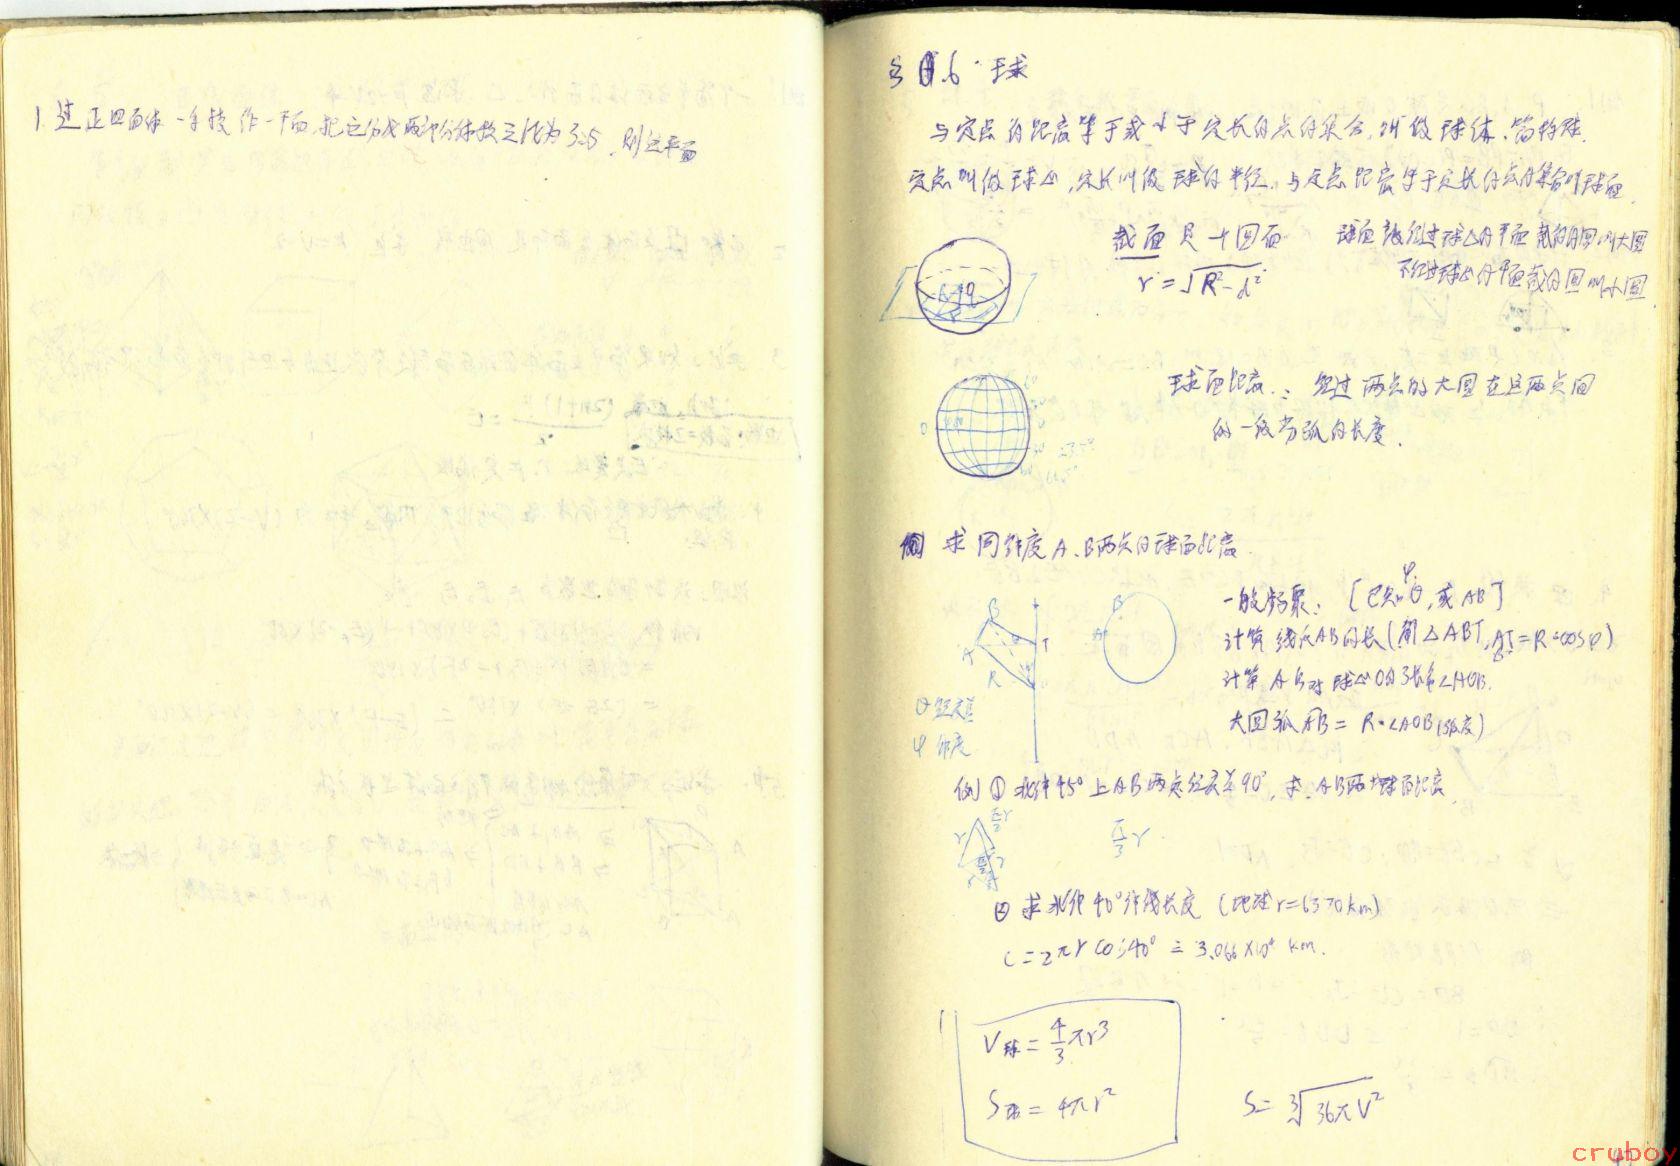 1. 过正四面体一条棱作一平面,把它分成两部分体积之比为3:5,则这平面
§ .6 球
与定点的距离等于或小于定长的点的集合,叫做球体,简称球.
定点叫做球心,定长叫做球的半径.与定点距离等于定长的点的集合叫球面.
截面是个圆面
r=√R²-d²
球面被经过球心的平面截的圆叫大圆
不经过球心的平面截的圆叫小圆
球面距离: 经过两点的大圆在这两点间
的一段劣弧的长度.
例 求同纬度A、B两点的球面距离.
B
A T
R
θ 经度差
φ 纬度
B
A
一般步骤: [已知φ,θ,或AB]
计算线段AB的长(解△ABT,AT=R·cosφ)
计算A、B对球心O的张角∠AOB.
大圆弧AB= R·∠AOB(弧度)
例① 北纬45°上AB两点经度差90°,求AB两地球面距离
π/3 r.
② 求北纬40°纬线长度 (地球r=6370km)
C=2πr cos40° = 3.066×10⁴ km.
V球=4/3 πr³
S球=4πr²
S=³√36πV²
cruboy